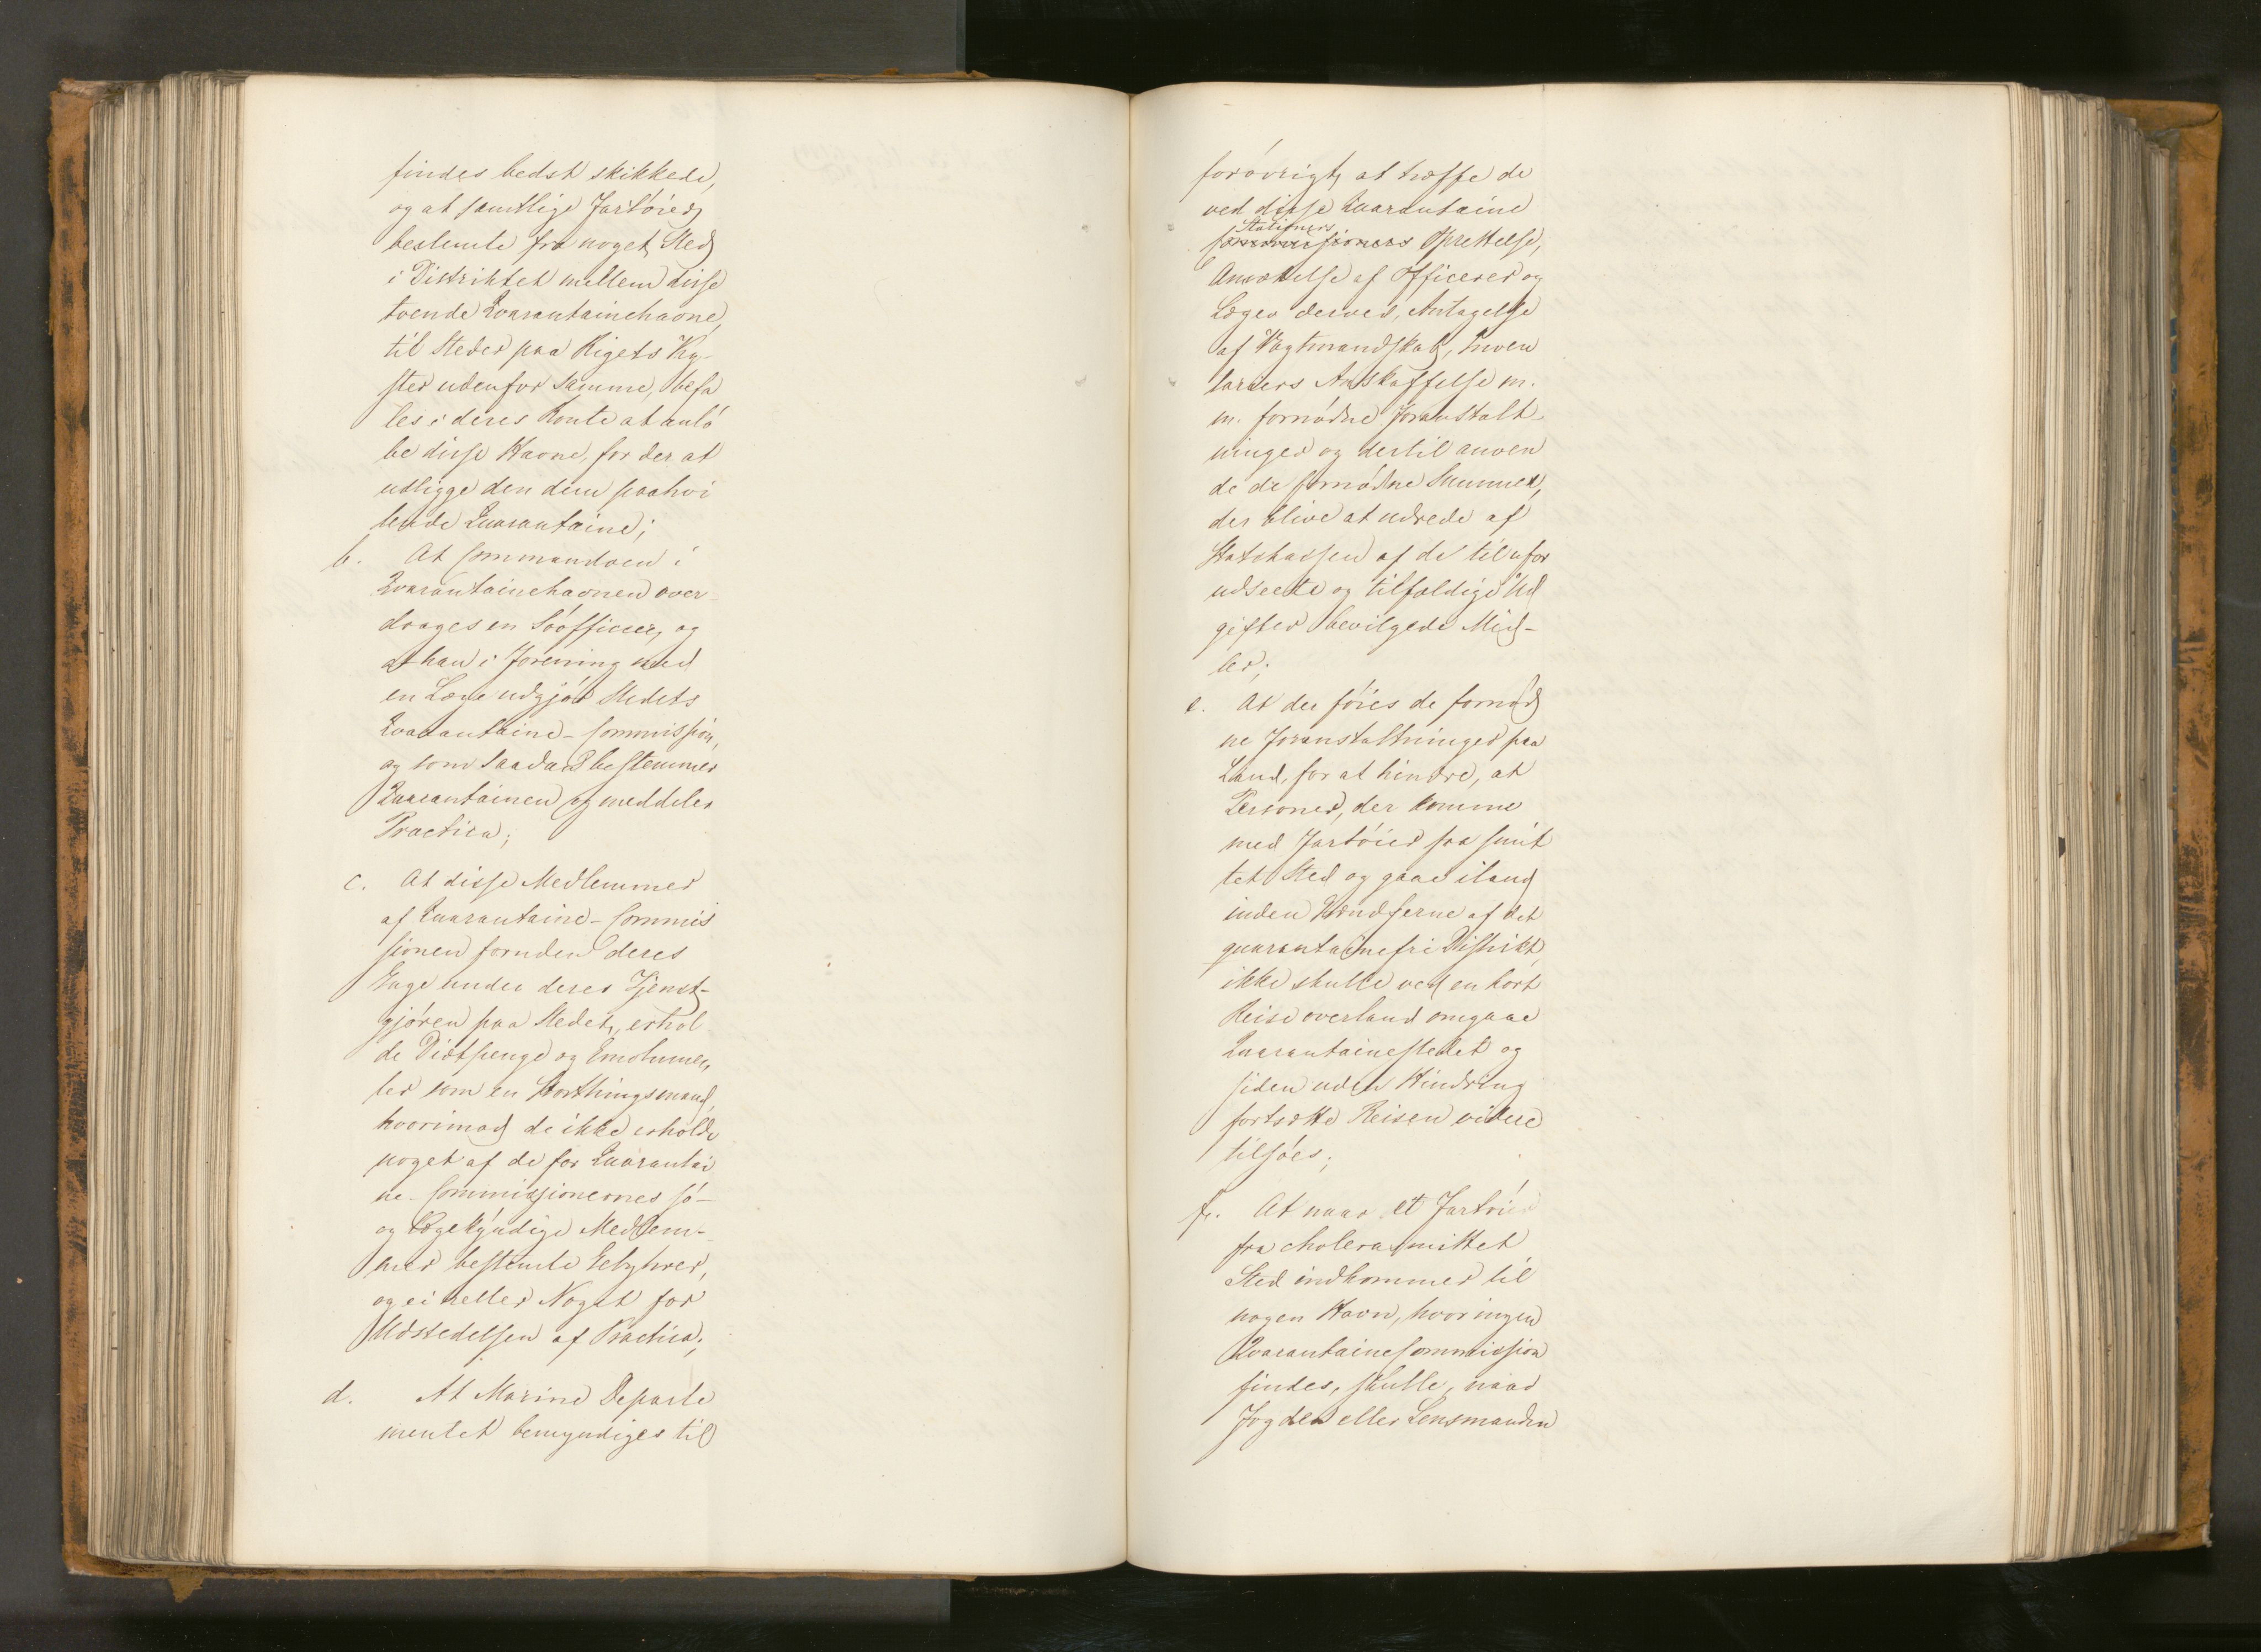 findes bedst skikkede,
og at samtlige Fartøier,
bestemte fra noget Sted
i Distriktet mellem disse
tvende Qvarantainehavne,
til Steder paa Rigets Ky-
ster udenfor samme, befa
les i deres Route at anlø
be disse Havne, for der at
udligge den dem paahvi
lende Quarantaine;
b. At Commandoen i
Qvarantainehavnen over
drages en Søofficier, og
at han i Forening med
en Læge udgjør Stedets
Qvarantaine-Commission,
og som saadan bestemmer
Quarantainen og meddeler
Practica;
c. At disse Medlemmer
af Quarantaine-Commis
sionen foruden deres
Gage under deres Tjenst-
gjøren paa Stedet, erhol
de Diætpenge og Emolumen
ter som en Storthingsmand,
hvorimod de ikke erholde
noget af de for Quarantai
ne-Commissionernes sø-
og lægekyndige Medlem-
mer bestemte Gebyhrer,
og ei heller Noget for
Udstedelsen af Practica;
d. At Marine Departe
mentet bemyndiges til
forøvrigt at træffe de
ved disse Quarantaine
Stationers
Commissioners Oprettelse,
Ansættelse af Officerer og
Læger derved, Antagelse
af Vagtmandskab, Inven
tariers Anskaffelse m.
m. fornødne Foranstalt-
ninger og dertil anven
de de fornødne Summer,
der blive at udrede af
Statskassen af de til ufor
udseete og tilfældige Ud
gifter bevilgede Mid-
ler;
e. At der føies de fornød
ne Foranstaltninger paa
Land, for at hindre, at
Personer, der komme
med Fartøier fra smit
tet Sted og gaae iland
inden Grændserne af det
quarantainefri Distrikt,
ikke skulle ved en kort
Reise overland omgaae
Quarantainestedet og
siden uden Hindring
fortsætte Reisen videre
tilsøes;
f. At naar et Fartøi
fra cholerasmittet
Sted indkommer til
nogen Havn, hvor ingen
Qvarantainecommission
findes, skulle, naar
Fogden eller Lensmanden